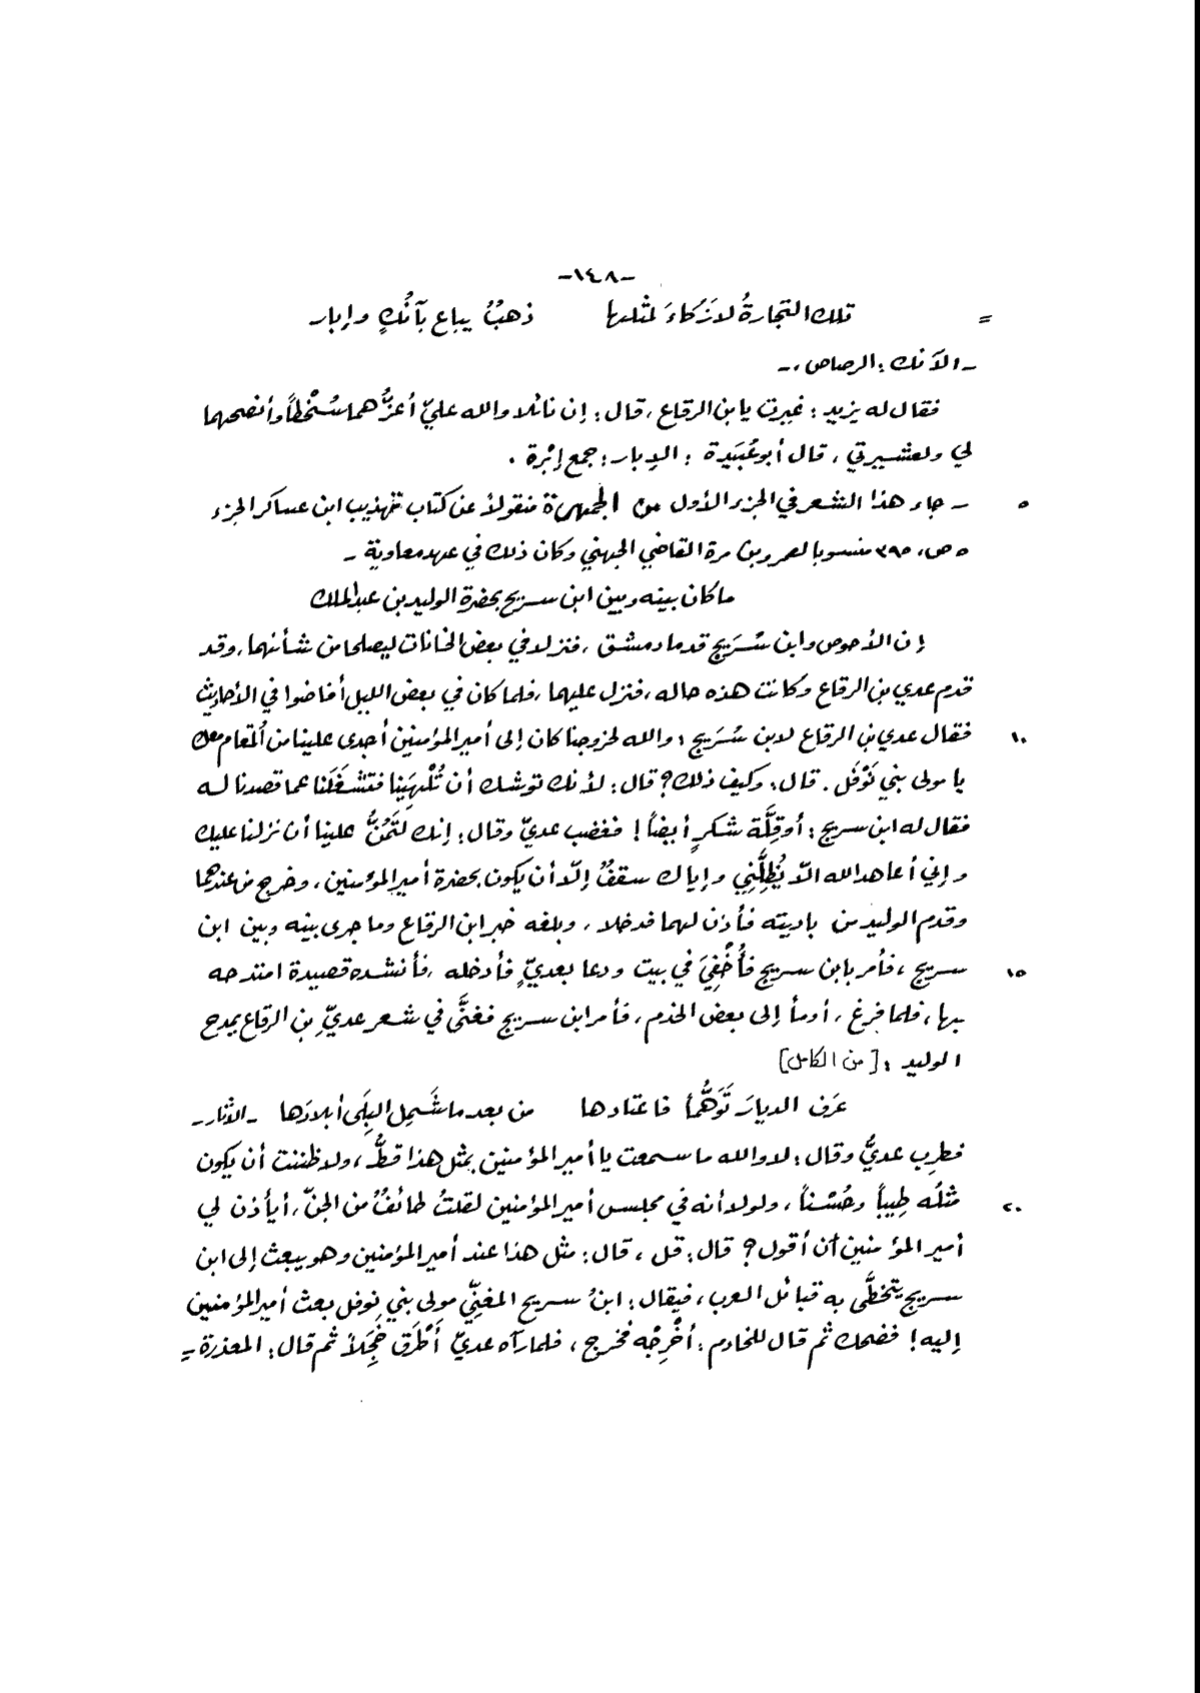 -١٤٨-
= تلك التجارةُ لا زَكاءَ لمثلها ذهبٌ يباع بآنُكٍ وإبار
- الآنك: الرصاص، -
فقال له يزيد: غيرت يا بن الرقاع، قال: إن ناتلا والله عليّ أعزُّهما سُخْطاً وأنصحهما
لي ولعشيرتي، قال أبو عُبَيدة: الإبار: جمع إبْرة.
٥ - جاء هذا الشعر في الجزء الأول من الجمهرة منقولاً عن كتاب تهذيب ابن عساكر الجزء
٥ ص، ٣٩٥ منسوبا لعمرو بن مرة القاضي الجهني وكان ذلك في عهد معاوية -
ما كان بينه وبين ابن سريج بحضرة الوليد بن عبد الملك
إن الأحوص وابن سُرَيج قدما دمشق، فنزلا في بعض الخانات ليصلحا من شأنهما، وقد
قدم عدي بن الرقاع وكانت هذه حاله، فنزل عليهما، فلما كان في بعض الليل أفاضوا في الأحاديث
١٠ فقال عدي بن الرقاع لابن سُرَيج: والله لخروجنا كان إلى أمير المؤمنين أجدى علينا من المقام معك
يا مولى بني نَوْفَل. قال: وكيف ذلك؟ قال: لأنك توشك أن تُلْهِيَنا فتشغَلَنا عما قصدنا له
فقال له ابن سريج: أوقِلَّة شكرٍ أيضاً! فغضب عديّ وقال: إنك لتَمُنُّ علينا أن نزلنا عليك
وإني أعاهد الله ألاّ يُظِلَّنِي وإياك سقفٌ إلّا أن يكون بحضرة أمير المؤمنين، وخرج من عندهما
وقدم الوليد من باديته فأذن لهما فدخلا، وبلغه خبر ابن الرقاع وما جرى بينه وبين ابن
١٥ سريج، فأمر بابن سريج فأُخْفِيَ في بيت ودعا بعديّ فأدخله، فأنشده قصيدة امتدحه
بها، فلما فرغ، أومأ إلى بعض الخدم، فأمر ابن سريج فغنَّى في شعر عديِّ بن الرقاع يمدح
الوليد: [من الكامل]
عَرَف الديارَ تَوَهُّماً فاعتادها من بعد ما شَمِل البِلَى أبلادَها - الآثار -
فطرِب عديٌّ وقال: لا والله ما سمعت يا أمير المؤمنين بمثل هذا قطُّ، ولا ظننت أن يكون
٢٠ مثلُه طِيباً وحُسْناً، ولولا أنه في مجلس أمير المؤمنين لقلتُ طائفٌ من الجنّ، أيأذن لي
أمير المؤمنين أن أقول؟ قال: قل، قال: مثل هذا عند أمير المؤمنين وهو يبعث إلى ابن
سريج يتخطَّى به قبائل العرب، فيقال: ابنُ سريج المغنّي مولى بني نوفل بعث أمير المؤمنين
إليه! فضحك ثم قال للخادم: أخْرِجْه فخرج، فلما رآه عديّ أَطْرَق خَجِلاً ثم قال: المعذرة =